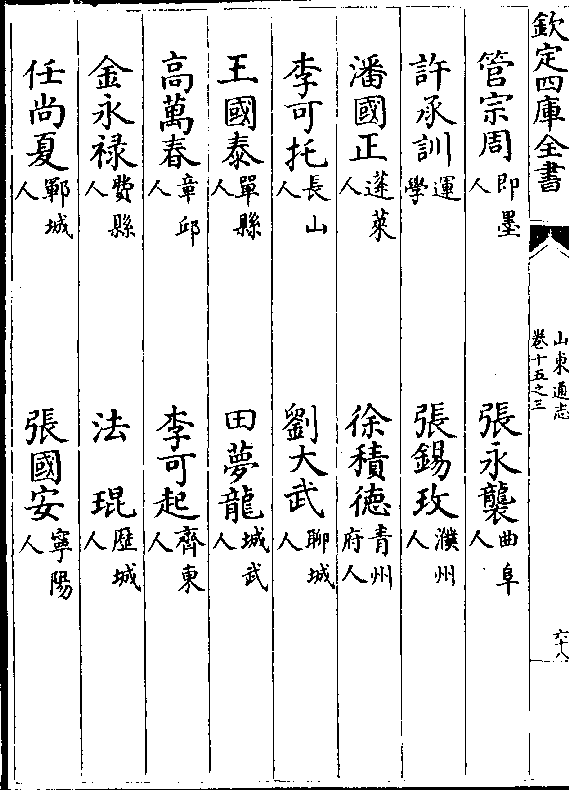 欽定四庫全書
山東通志
卷十五之三
六十八
管宗周 即墨人 張永襲 曲阜人
許承訓 運學 張錫玫 濮州人
潘國正 蓬萊人 徐積德 青州府人
李可托 長山人 劉大武 聊城人
王國泰 單縣人 田夢龍 城武人
高萬春 章邱人 李可起 齊東人
金永禄 費縣人 法琨 歷城人
任尚夏 鄆城人 張國安 寧陽人